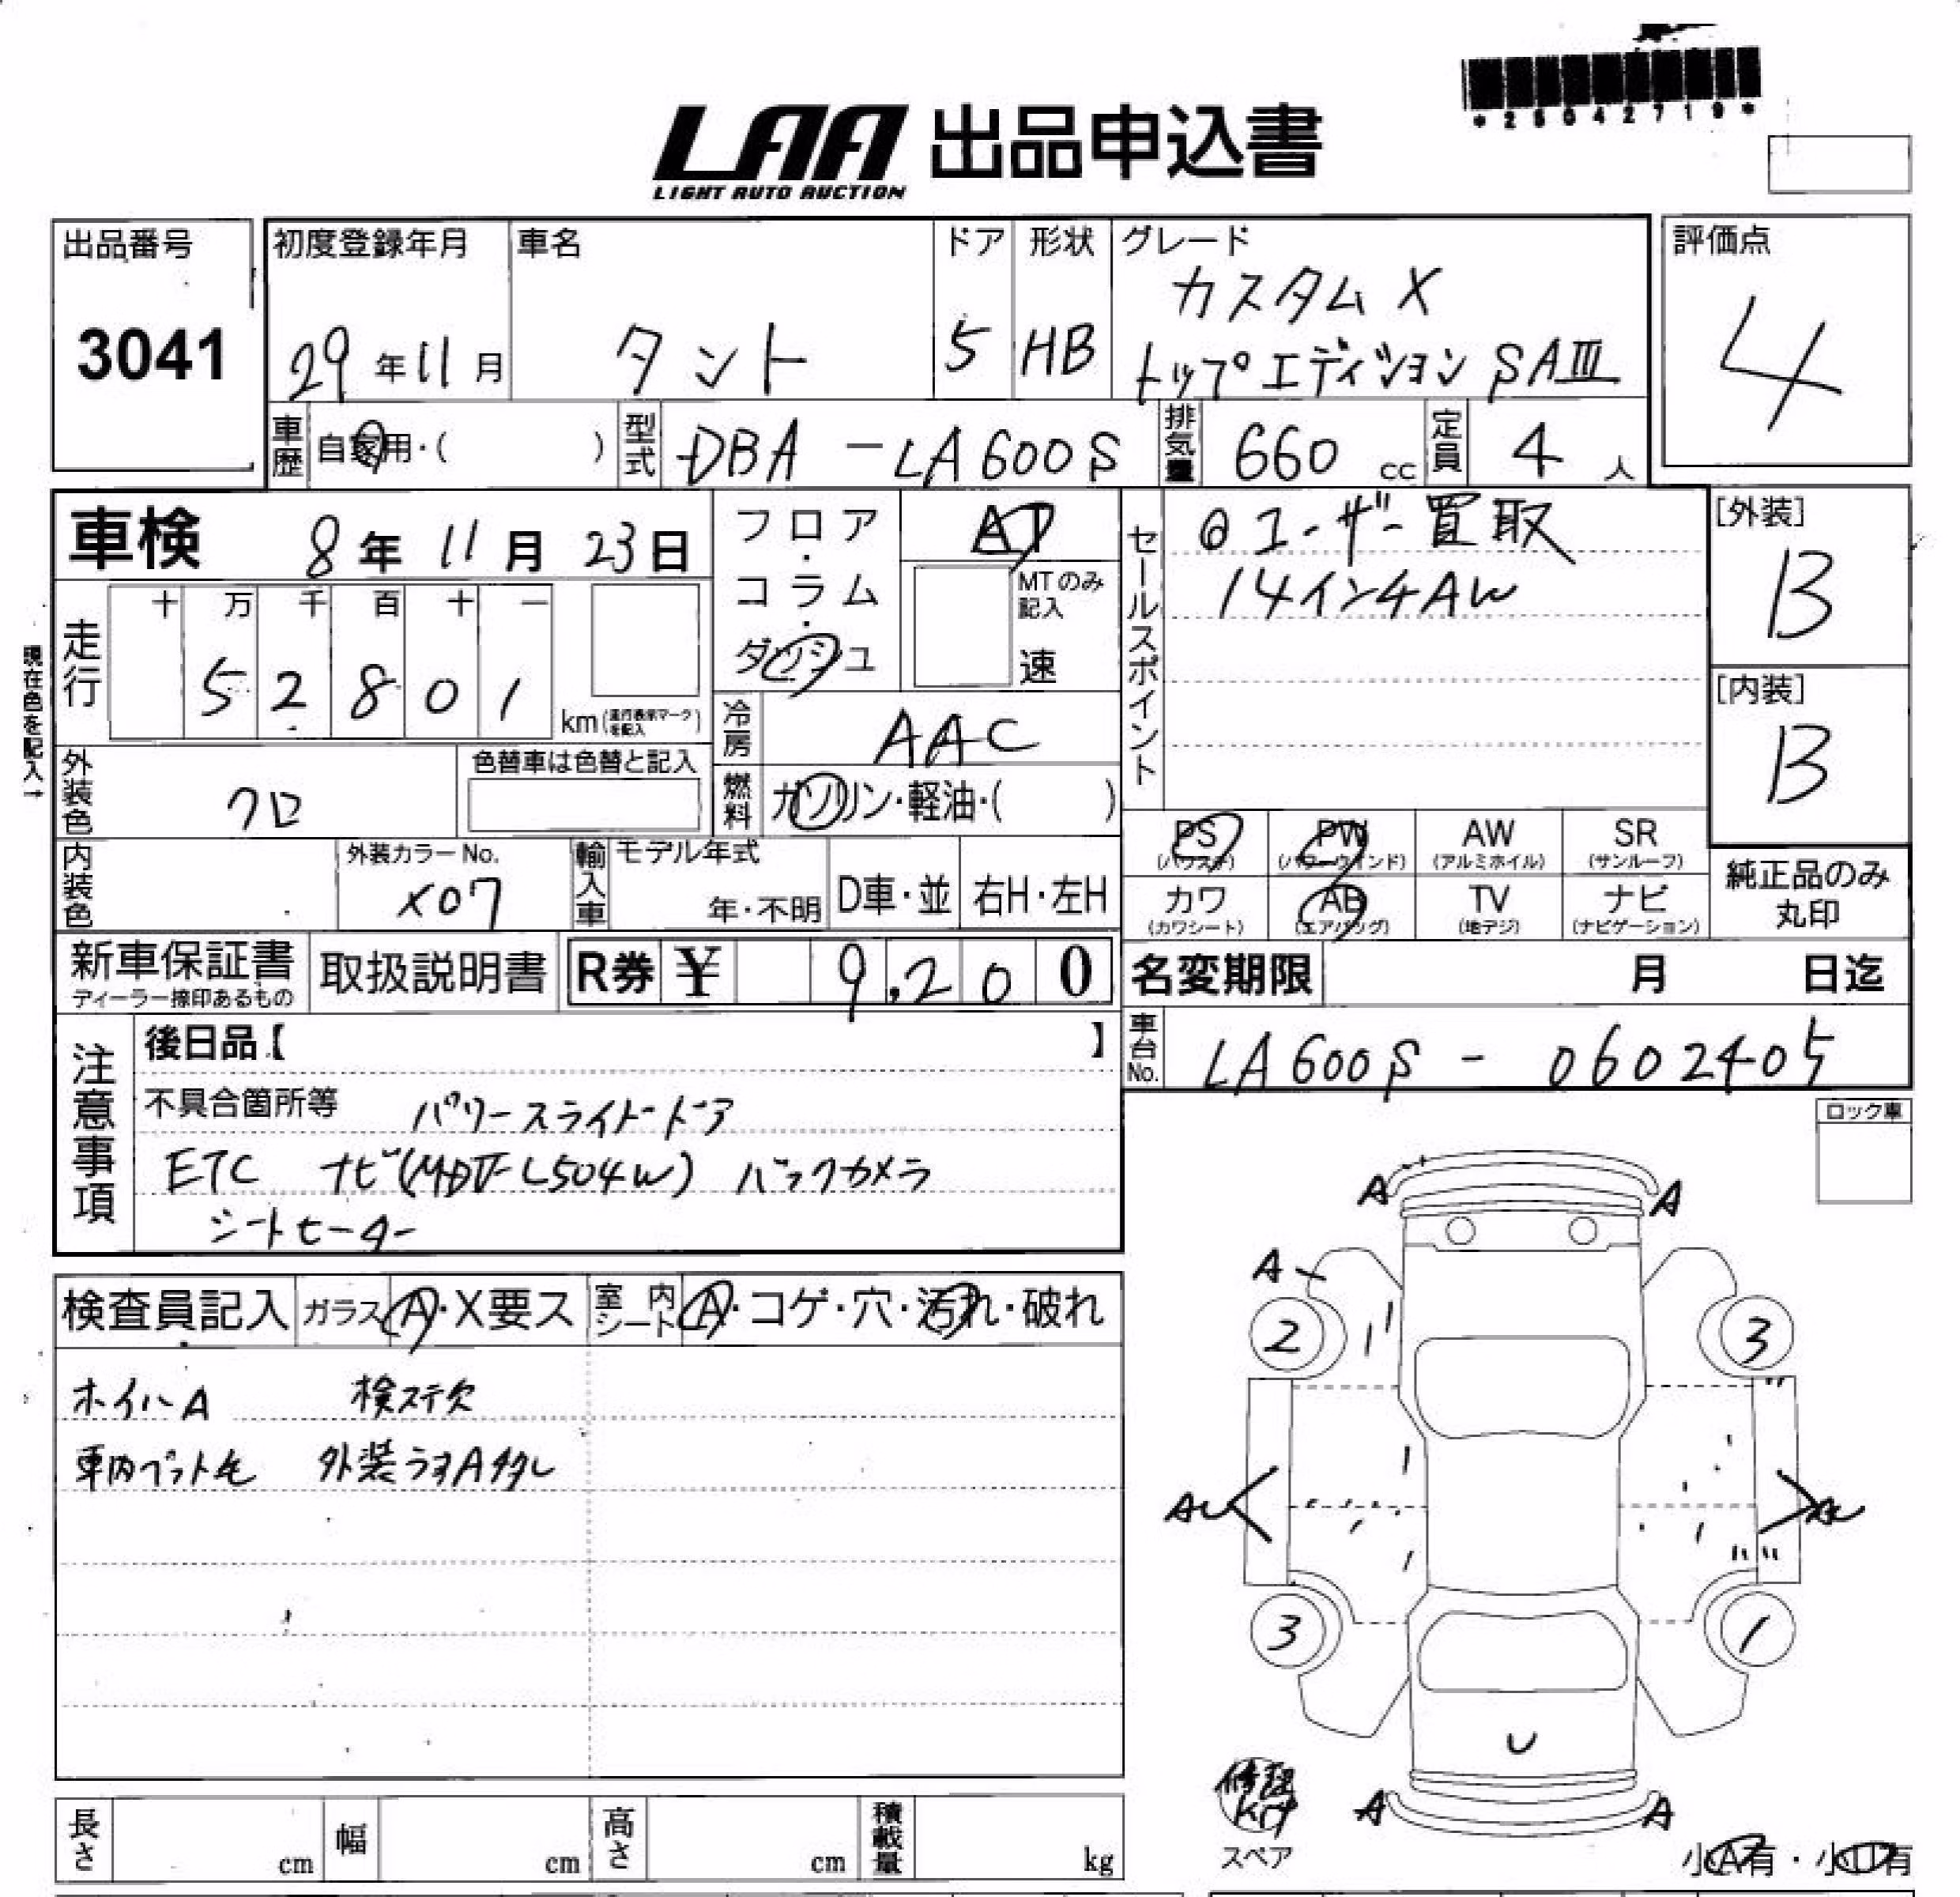 *25042719*
LAA 出品申込書
LIGHT AUTO AUCTION
出品番号
3041
初度登録年月
29年11月
車名
タント
ドア
5
形状
HB
グレード
カスタムX
トップエディション SAⅢ
評価点
4
車歴 自家用・( )
型式 DBA-LA600S
排気量 660cc
定員 4人
車検 8年 11月 23日
フロア・コラム・ダッシュ
AT
MTのみ記入
速
現在色を記入→
走行
十 万 千 百 十 一
5 2 8 0 1
km(走行表示マークを記入)
外装色 クロ
色替車は色替と記入
冷房 AAC
燃料 ガソリン・軽油・( )
内装色
外装カラーNo.
X07
輸入車 モデル年式
年・不明
D車・並
右H・左H
セールスポイント
◎ユーザー買取
14インチAW
[外装]
B
[内装]
B
PS
(パワステ)
PW
(パワーウインド)
AW
(アルミホイル)
SR
(サンルーフ)
カワ
(カワシート)
AB
(エアバッグ)
TV
(地デジ)
ナビ
(ナビゲーション)
純正品のみ
丸印
新車保証書
ディーラー捺印あるもの
取扱説明書
R券 ¥ 9,200
名変期限 月 日迄
車台No. LA600S-0602405
注意事項
後日品【 】
不具合箇所等 パワースライドドア
ETC ナビ(MDV-L504W) バックカメラ
シートヒーター
ロック車
検査員記入
ガラス A・X要ス
室内シート A・コゲ・穴・汚れ・破れ
ホイハA 検ステ欠
車内ペット毛 外装うすA多々
A A
A
2 3
3 1
U
A A
修理kit
スペア
小A有・小U有
長さ cm
幅 cm
高さ cm
積載量 kg